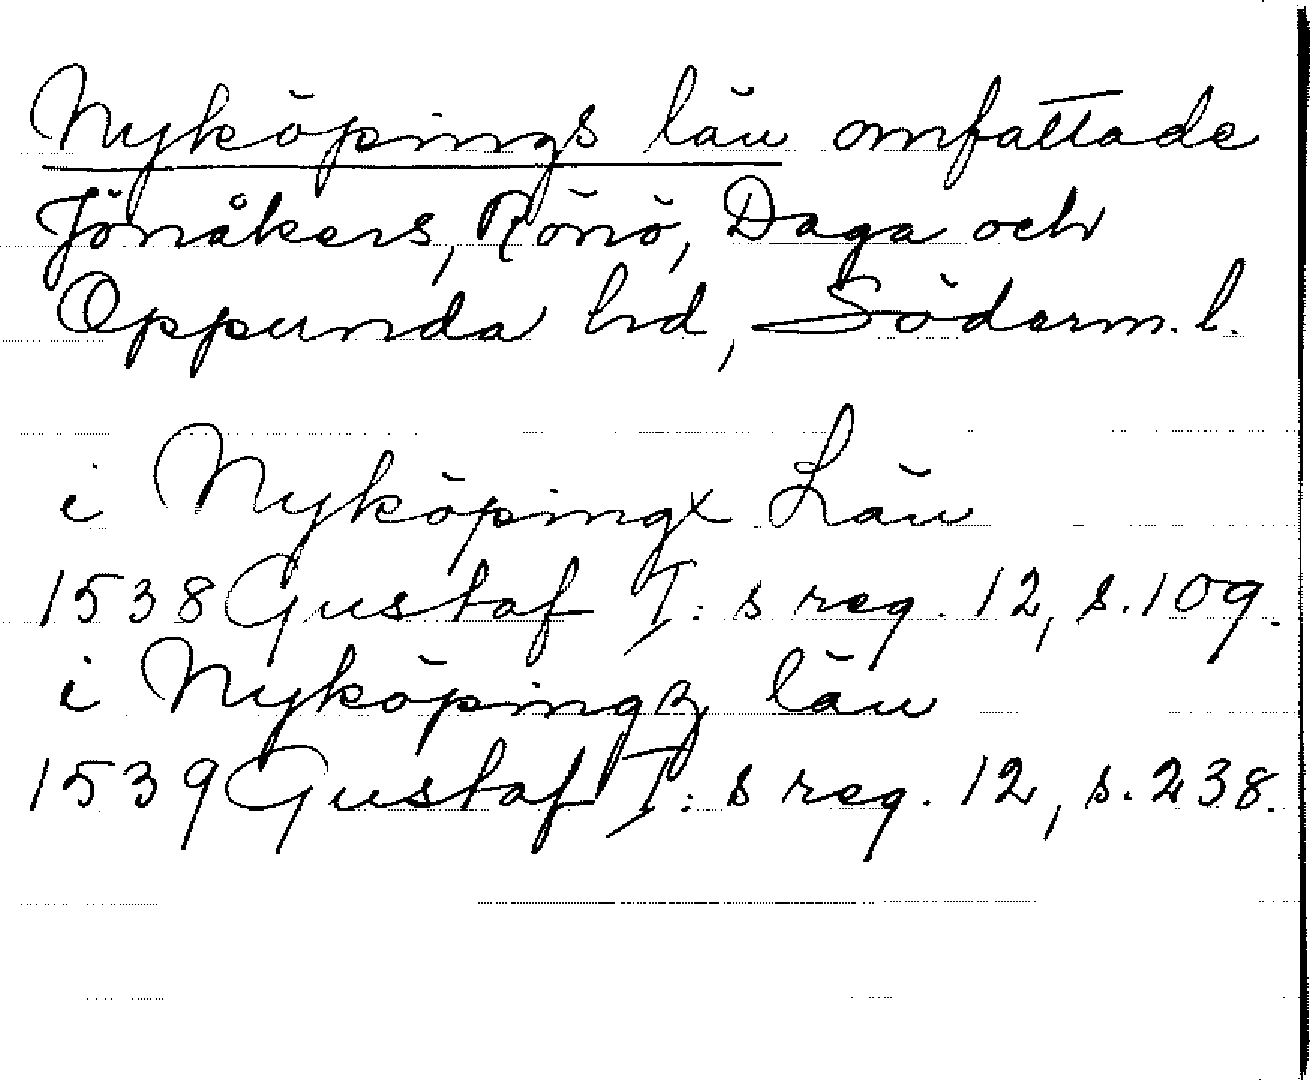 Nyköpings län omfattade
Jönåkers, Rönö, Daga och
Oppunda hd, Söderm. l.
i Nyköpingx Län
1538 Gustaf I: s reg. 12, s. 109.
i Nyköpingz län
1539 Gustaf I: s reg. 12, s. 238.